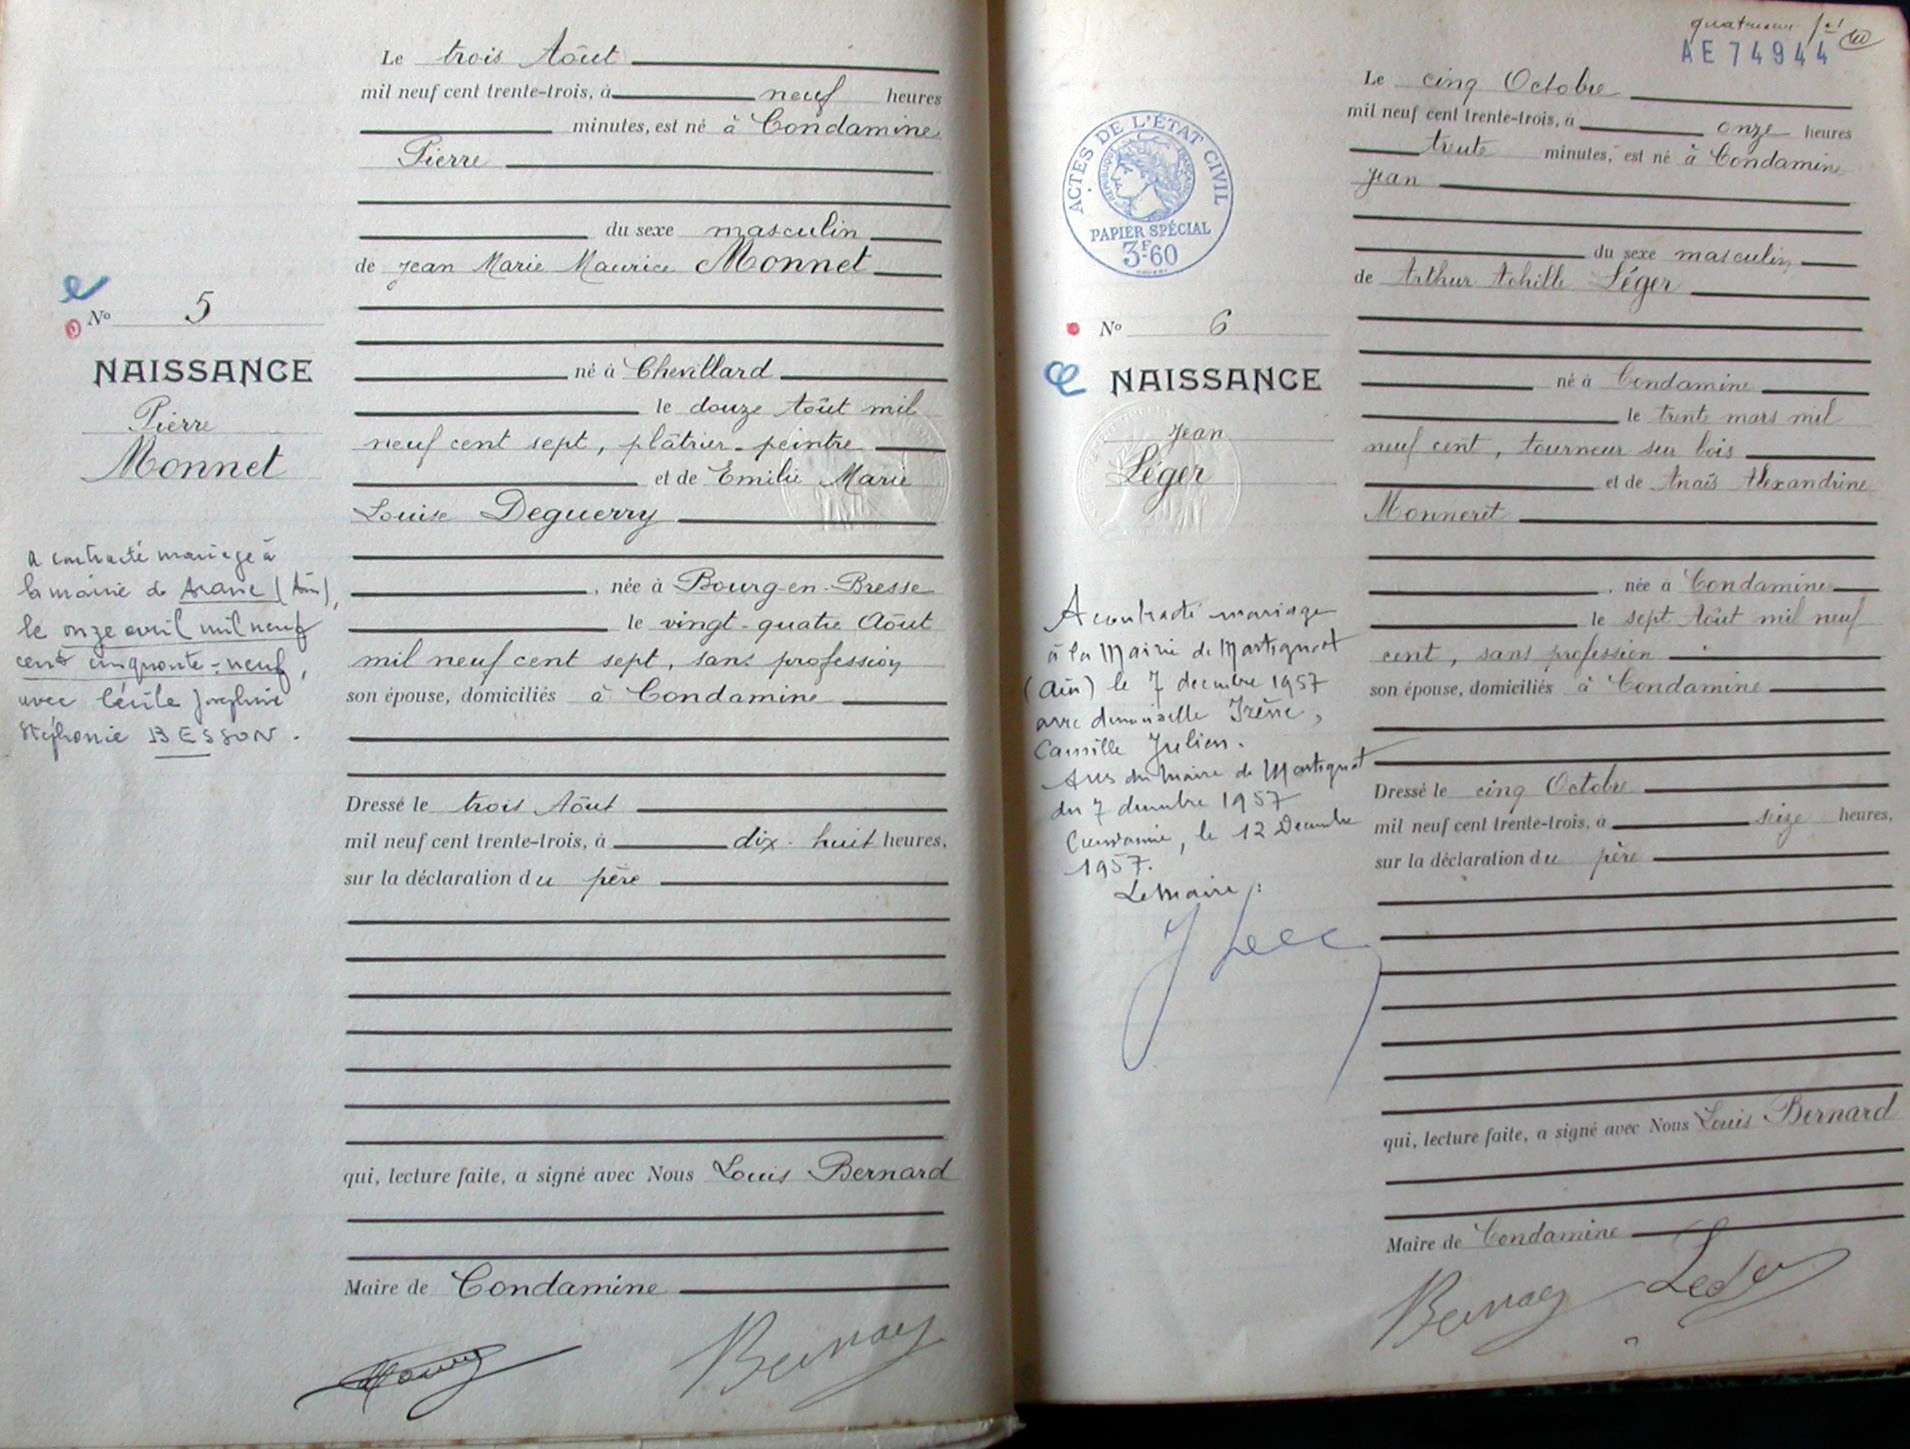 Le trois Août
mil neuf cent trente-trois, à neuf heures
minutes, est né à Condamine
Pierre
du sexe masculin
de Jean Marie Maurice Monnet
né à Chevillard
le douze Août mil
neuf cent sept, plâtrier-peintre
et de Emilie Marie
Louise Deguerry
, née à Bourg-en-Bresse
le vingt-quatre Août
mil neuf cent sept, sans profession
son épouse, domiciliés à Condamine
Dressé le trois Août
mil neuf cent trente-trois, à dix-huit heures,
sur la déclaration du père
qui, lecture faite, a signé avec Nous Louis Bernard
Maire de Condamine
No 5
NAISSANCE
Pierre
Monnet
a contracté mariage à
la mairie de (Ain),
le onze avril mil neuf
cent cinquante-neuf,
avec Cécile Joséphine
Stéphanie BESSON.
AE 74944
Le cinq Octobre
mil neuf cent trente-trois, à onze heures
trente minutes, est né à Condamine
Jean
du sexe masculin
de Arthur Achille Léger
né à Condamine
le trente mars mil
neuf cent, tourneur sur bois
et de Anaïs Alexandrine
Monneret
, née à Condamine
le sept Août mil neuf
cent, sans profession
son épouse, domiciliés à Condamine
Dressé le cinq Octobre
mil neuf cent trente-trois, à seize heures,
sur la déclaration du père
qui, lecture faite, a signé avec Nous Louis Bernard
Maire de Condamine
ACTES DE L'ÉTAT CIVIL
RÉPUBLIQUE FRANÇAISE
PAPIER SPÉCIAL
3F60
No 6
NAISSANCE
Jean
Léger
A contracté mariage
à la Mairie de Martignat
(Ain) le 7 décembre 1957
avec demoiselle Irène,
Camille Julien.
Avis du Maire de Martignat
du 7 décembre 1957
Condamine, le 12 Décembre
1957.
Le Maire :